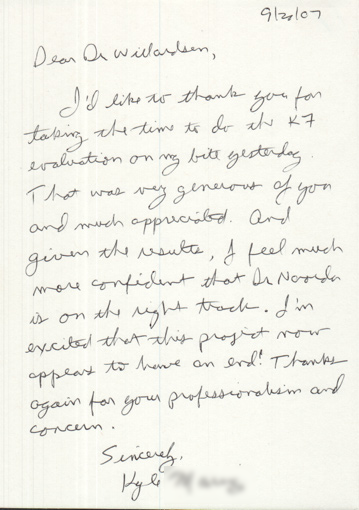 9/20/07
Dear Dr Willardsen,
I'd like to thank you for
taking the time to do the K7
evaluation on my bite yesterday.
That was very generous of you
and much appreciated. And
given the results, I feel much
more confident that Dr Noorda
is on the right track. I'm
excited that this project now
appears to have an end! Thanks
again for your professionalism and
concern.
Sincerely,
Kyle